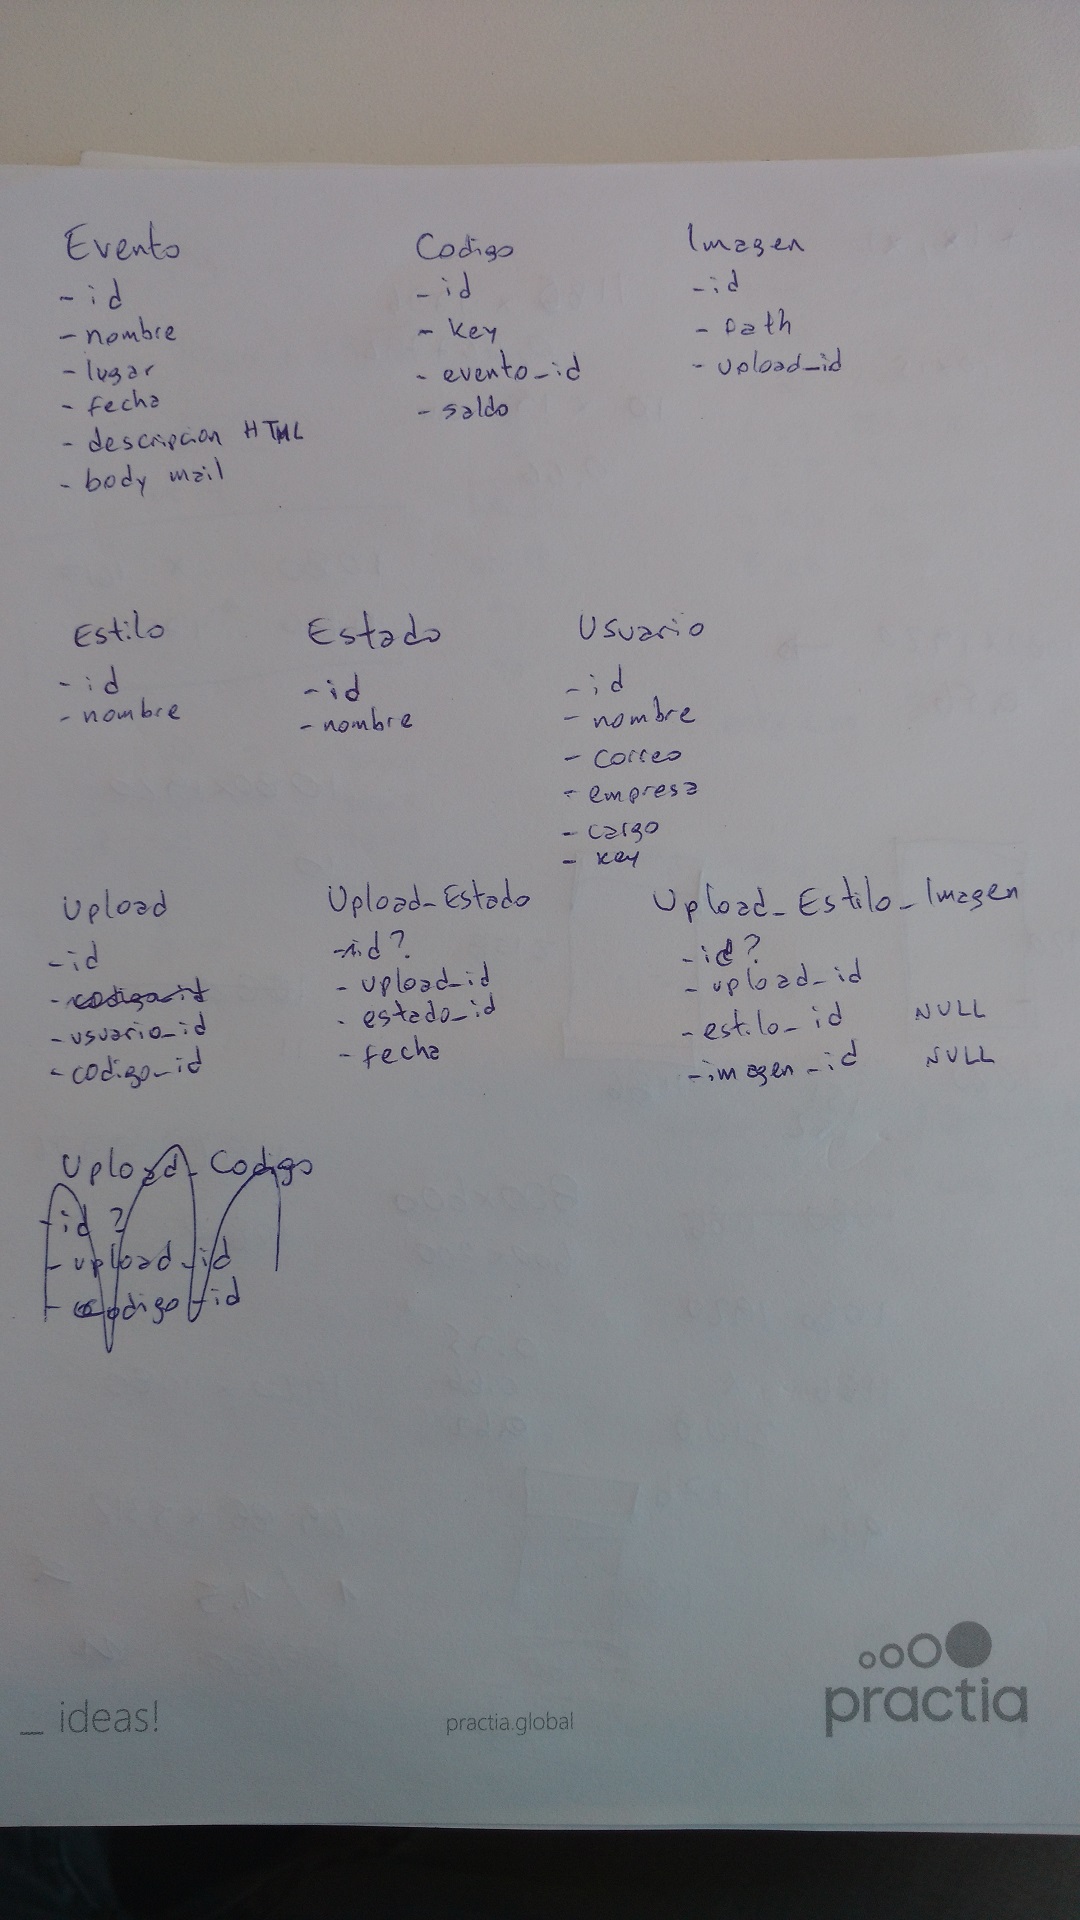 Evento
- id
- nombre
- lugar
- fecha
- descripcion HTML
- body mail
Codigo
- id
- key
- evento_id
- saldo
Imagen
- id
- path
- upload_id
Estilo
- id
- nombre
Estado
- id
- nombre
Usuario
- id
- nombre
- correo
- empresa
- cargo
- key
Upload
- id
- codigo_id
- usuario_id
- codigo_id
Upload_Estado
- id?
- upload_id
- estado_id
- fecha
Upload_Estilo_Imagen
- id?
- upload_id
- estilo_id NULL
- imagen_id NULL
Upload_Codigo
- id ?
- upload_id
- codigo_id
_ ideas!
practia.global
practia